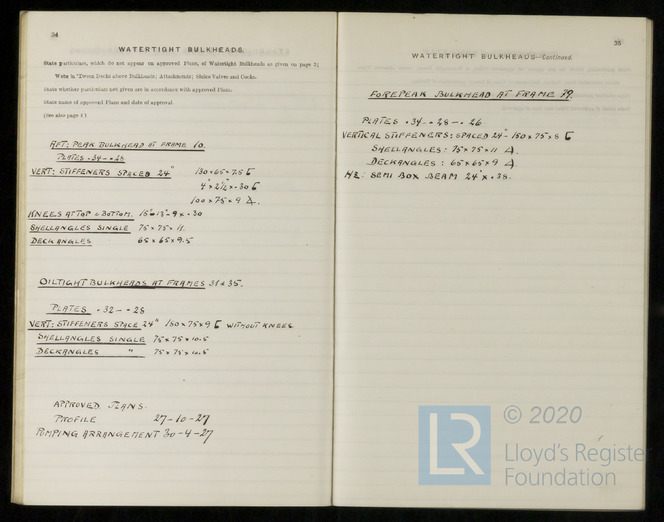 34
WATERTIGHT BULKHEADS.
State particulars, which do not appear on approved Plans, of Watertight Bulkheads as given on page 2;
Webs in 'Tween Decks above Bulkheads; Attachments; Sluice Valves and Cocks.
State whether particulars not given are in accordance with approved Plans.
State name of approved Plans and date of approval.
(See also page 4)
AFT: PEAK BULKHEAD AT FRAME 10.
PLATES .34 - .28
VERT: STIFFENERS SPACED 24" 130 x 65 x 7.5 [
4" x 2½" x .30 [
100 x 75 x 9
KNEES AT TOP & BOTTOM. 15" 13" 9 x .30
SHELLANGLES SINGLE 75 x 75 x 11.
DECK ANGLES 65 x 65 x 9.5
OILTIGHT BULKHEADS AT FRAMES 31 & 35.
PLATES .32 - .28
VERT: STIFFENERS SPACE 24" 150 x 75 x 9 [ WITHOUT KNEES.
SHELLANGLES SINGLE 75 x 75 x 10.5
DECKANGLES " 75 x 75 x 10.5
APPROVED PLANS.
PROFILE 27-10-27
PUMPING ARRANGEMENT 30-4-27
35
WATERTIGHT BULKHEADS—Continued.
FOREPEAK BULKHEAD AT FRAME 79.
PLATES .34 - .28 - .26
VERTICAL STIFFENERS: SPACED 24" - 150 x 75 x 8 [
SHELLANGLES: 75 x 75 x 11
DECKANGLES: 65 x 65 x 9
SEMI BOX BEAM 24" x .38.
© 2020
LR
Lloyd's Register
Foundation